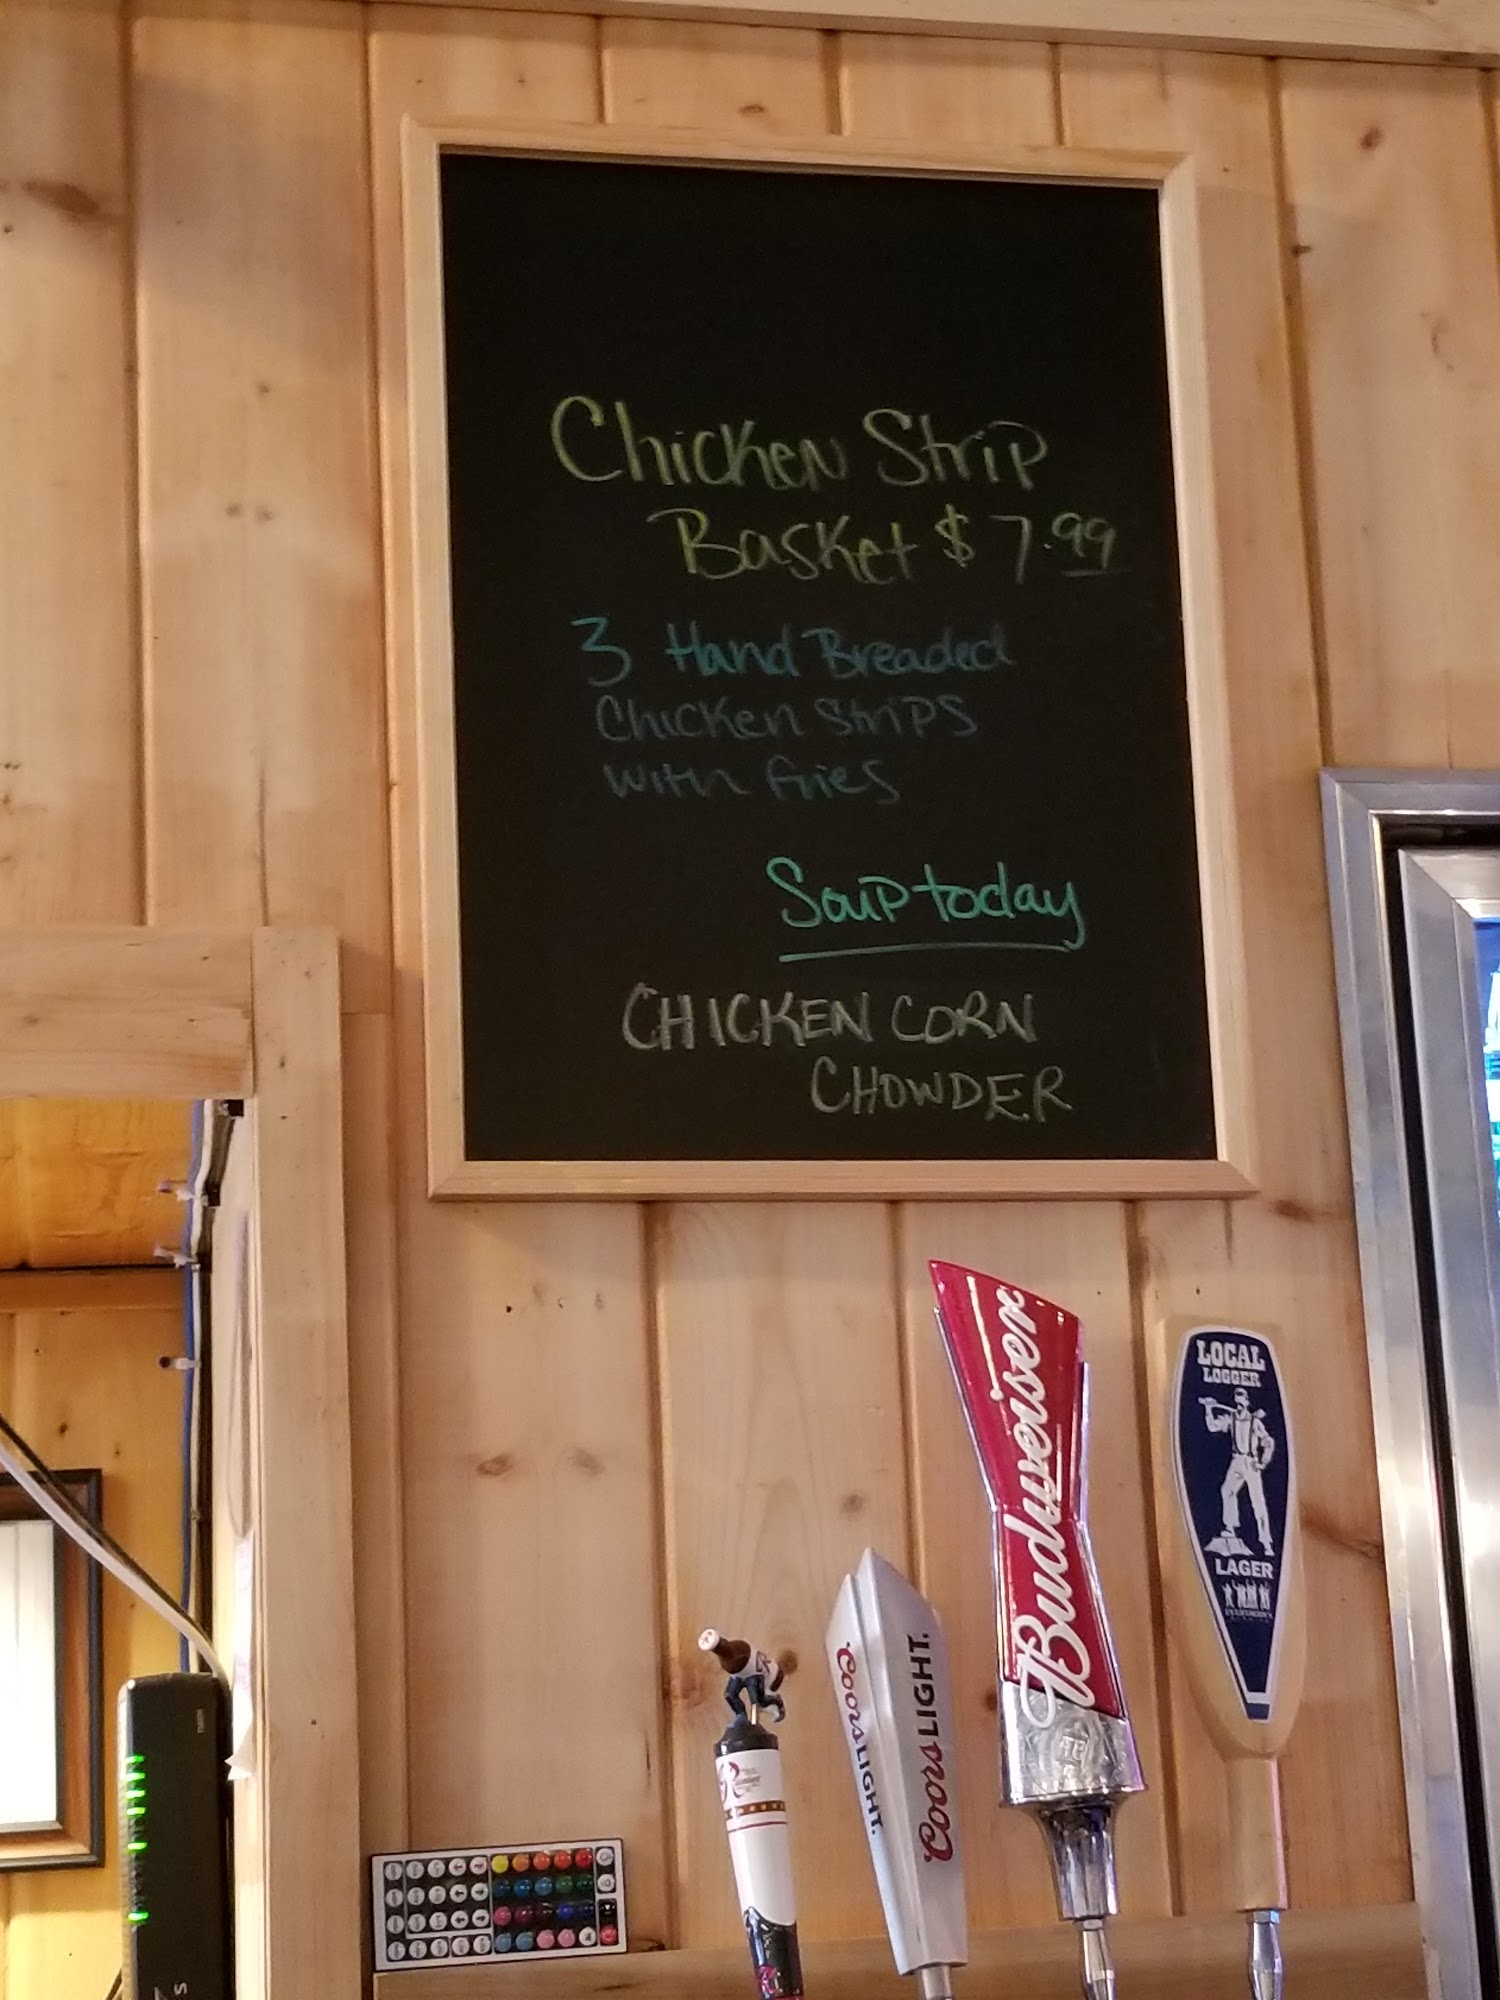 Chicken Strip
Basket $7.99
3 Hand Breaded
Chicken Strips
with fries
Soup today
CHICKEN CORN
CHOWDER
Budweiser
LOCAL
LOGGER
LAGER
Coors LIGHT.
Coors LIGHT.